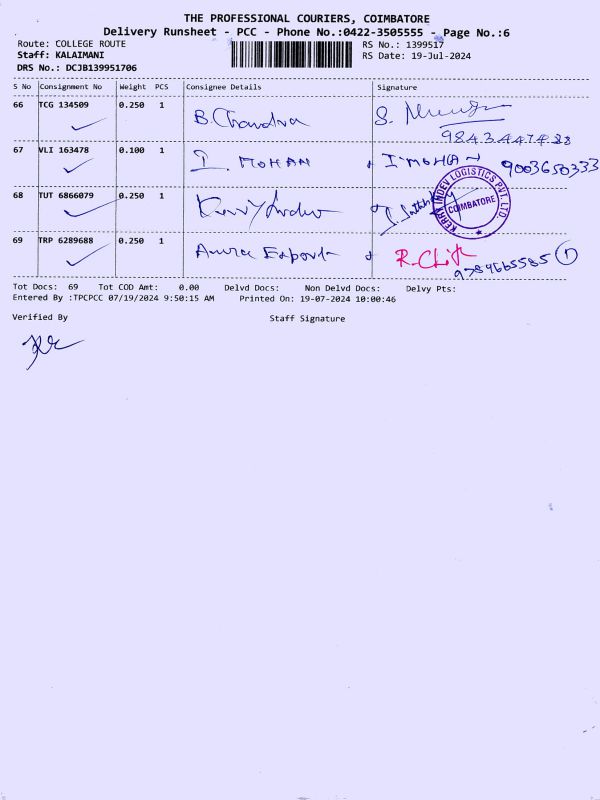 THE PROFESSIONAL COURIERS, COIMBATORE
Delivery Runsheet - PCC - Phone No.:0422-3505555 - Page No.:6
Route: COLLEGE ROUTE RS No.: 1399517
Staff: KALAIMANI RS Date: 19-Jul-2024
DRS No.: DCJB139951706
S No Consignment No Weight PCS Consignee Details Signature
66 TCG 134509 0.250 1 B. Chandra S.
9843447428
67 VLI 163478 0.100 1 I. MOHAN I. MOHAN 9003650333
68 TUT 6866079 0.250 1 Kerry Indev
KERRY INDEV LOGISTICS PVT. LTD
COIMBATORE
69 TRP 6289688 0.250 1 Export R.
9789665585
Tot Docs: 69 Tot COD Amt: 0.00 Delvd Docs: Non Delvd Docs: Delvy Pts:
Entered By :TPCPCC 07/19/2024 9:50:15 AM Printed On: 19-07-2024 10:00:46
Verified By Staff Signature